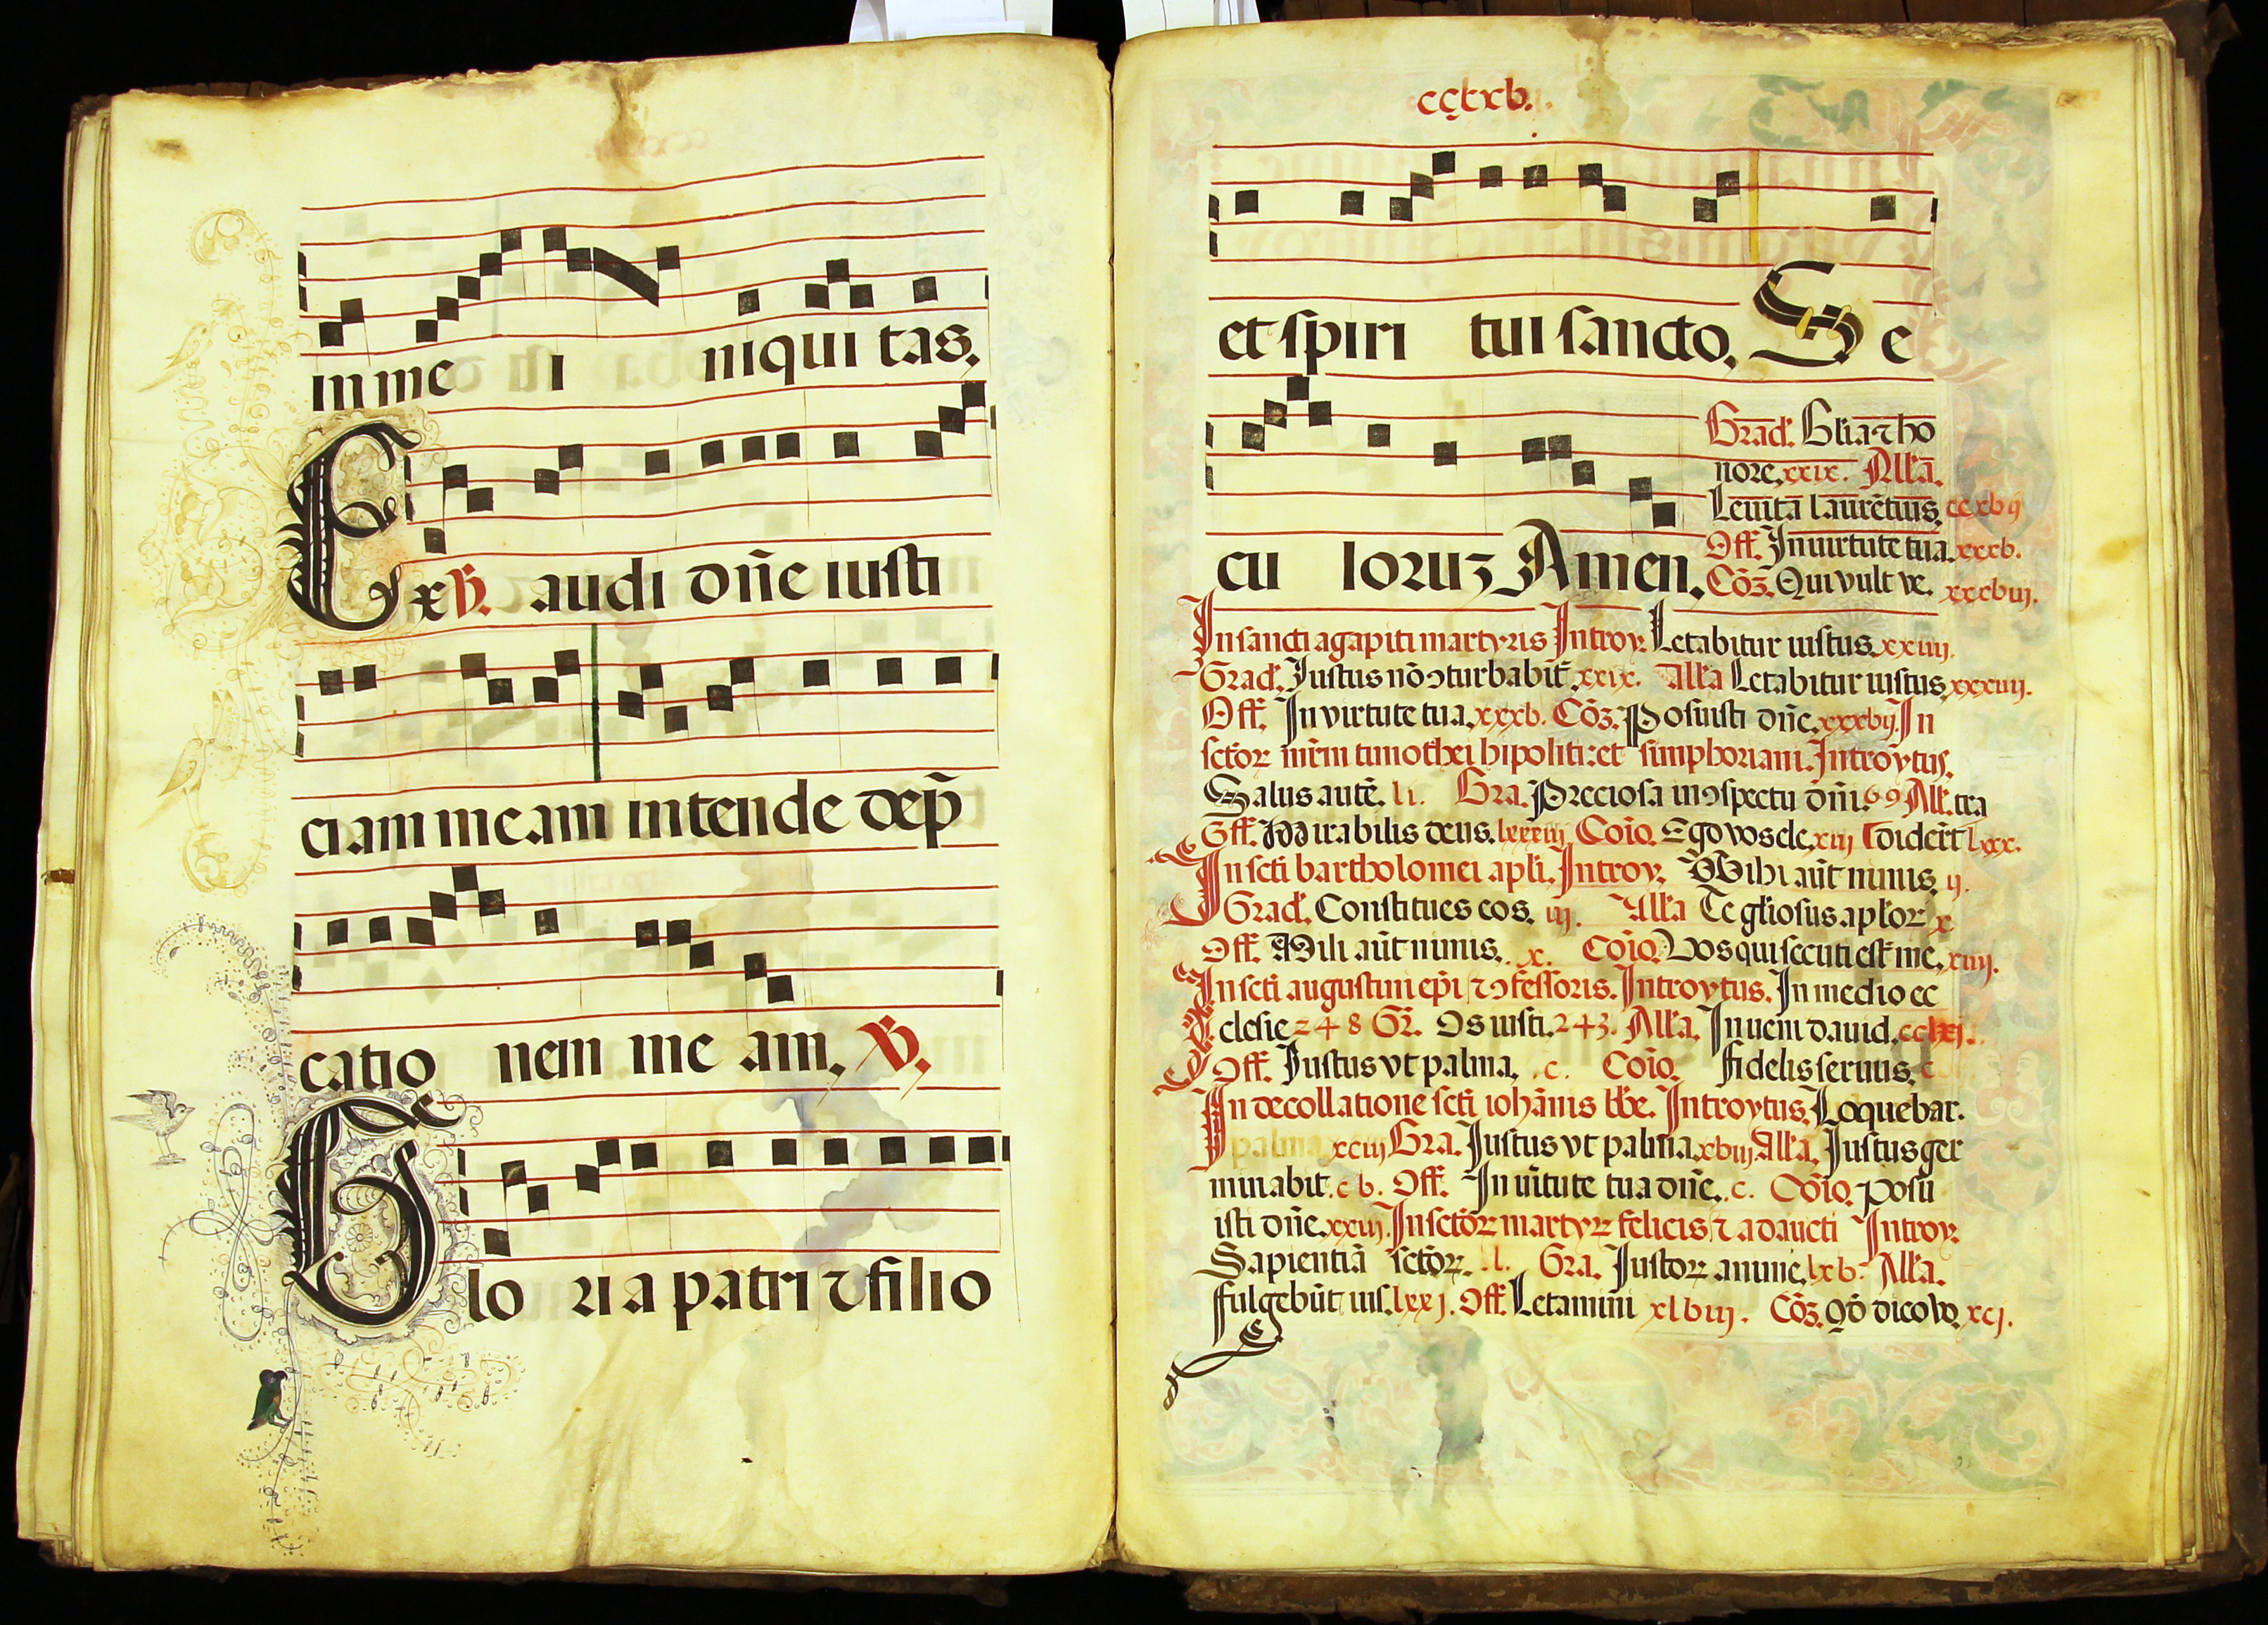 in me i niqui tas.
Ex ℣. audi dñe iusti
ciam meam intende dep̃
catio nem me am. ℣.
Glo ria patri ⁊ filio
ccxxb.
et spiri tui sancto. Se
cu loruz Amen.
Grad. Gl̃ia ⁊ ho
nore. xxix. All̃a.
Leuita laurẽtius. ccxbij
Off. In uirtute tua. xxxb.
Cõz. Qui vult ve. xxxbiij.
In sancti agapiti martyris Introy. Letabitur iustus. xxiiij.
Grad. Iustus nõ ꝯturbabit̃. xxix. All̃a Letabitur iustus. xxxiiij.
Off. In virtute tua. xxxb. Cõz. Posuisti dñe. xxxbij. In
sctõꝝ mr̃m timothei hipoliti: et simphoriani. Introytus.
Salus autẽ. li. Gra. Preciosa in ꝯspectu dñi. 69 All̃. tra
Off. Mirabilis deus. lxxxiij Coĩo. Ego vos ele. xiij Tdiderc̃t lxx.
In scti bartholomei apli. Introy. Mihi aũt nimis. ij.
Grad. Constitues eos. iij. All̃a Te gl̃iosus apl̃oꝝ x
Off. Mihi aũt nimis. x. Coĩo. Vos qui secuti est̃ me. xiiij.
In scti augustini ep̃i ⁊ ꝯfessoris. Introytus. In medio ec
clesie 248 Gr̃. Os iusti. 243. All̃a. Inueni dauid. cclxj.
Off. Iustus vt palma. c. Coĩo. fidelis seruus. c
In decollatione scti iohãnis bb̃e. Introytus. Loquebar.
palma xciij Gra. Iustus vt palma. xbiij All̃a. Iustus ger
minabit. cb. Off. In uĩtute tua dñe. c. Coĩo. posu
isti dñe. xxiij. In sctõꝝ martyꝝ felicis ⁊ adaucti Introy.
Sapientiã sctõꝝ. l. Gra. Iustoꝝ anime. lxb. All̃a.
fulgebũt ius. lxxj. Off. Letamini xlbiij. Cõz. Qõ dico vo. xcj.